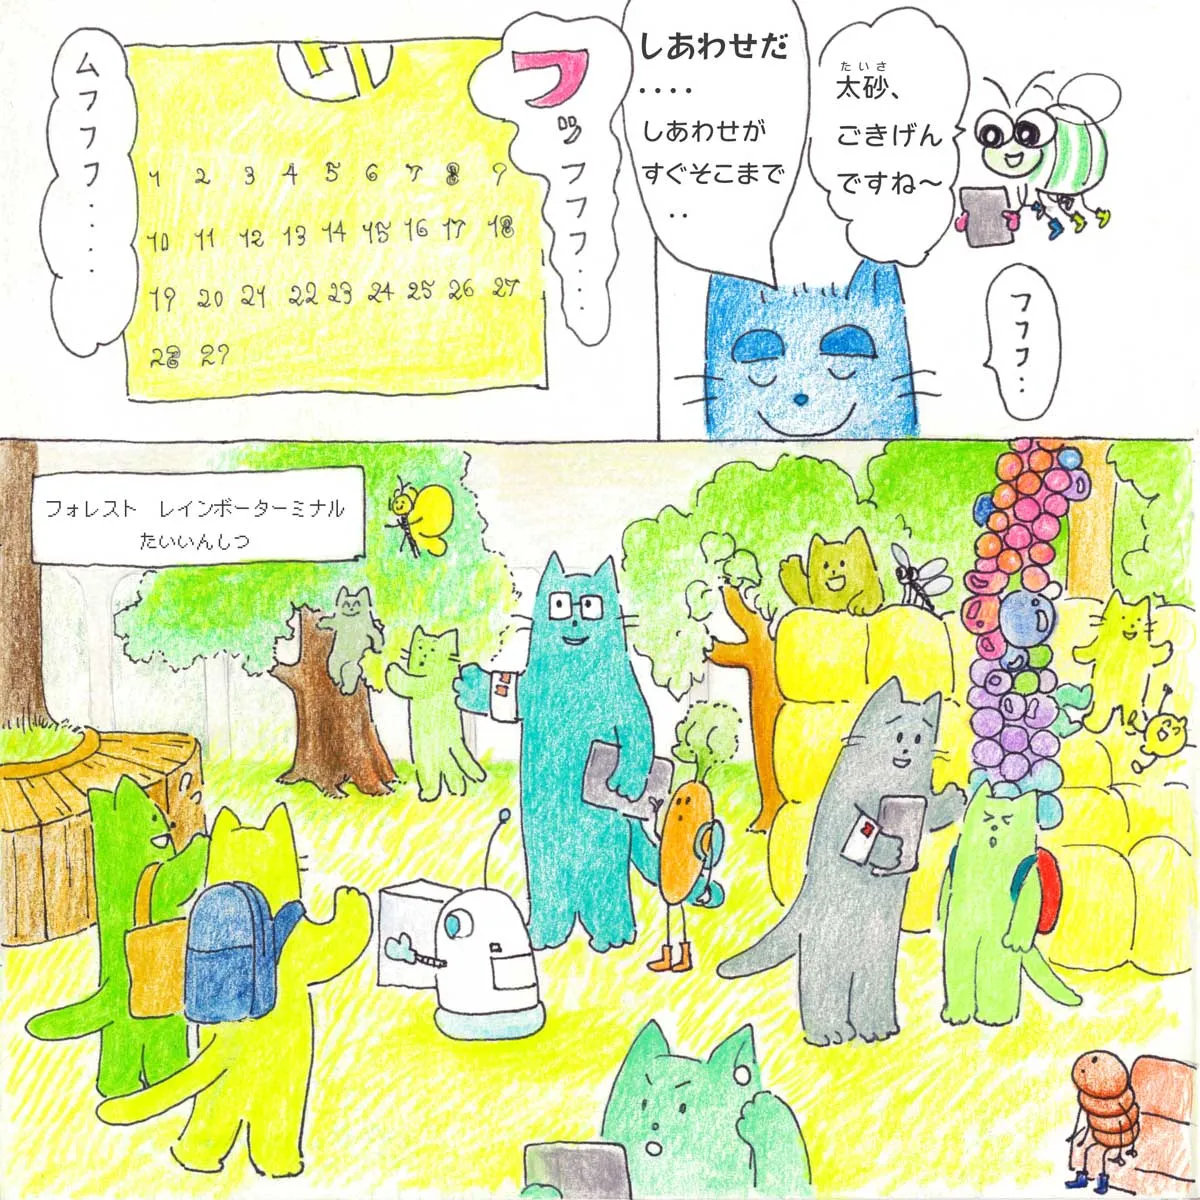 ムフフフ‥‥
1 2 3 4 5 6 7 8 9
10 11 12 13 14 15 16 17 18
19 20 21 22 23 24 25 26 27
28 29
フッフフフ‥‥
しあわせだ
‥‥
しあわせが
すぐそこまで
‥
たいさ
太砂、
ごきげん
ですね〜
フフフ‥
フォレスト　レインボーターミナル
たいいんしつ